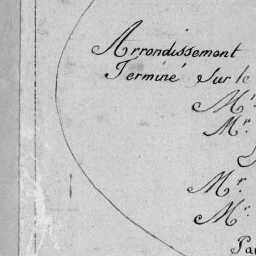 Arrondissement
Terminé Sur le
M.r
M.r
M.r
M.r